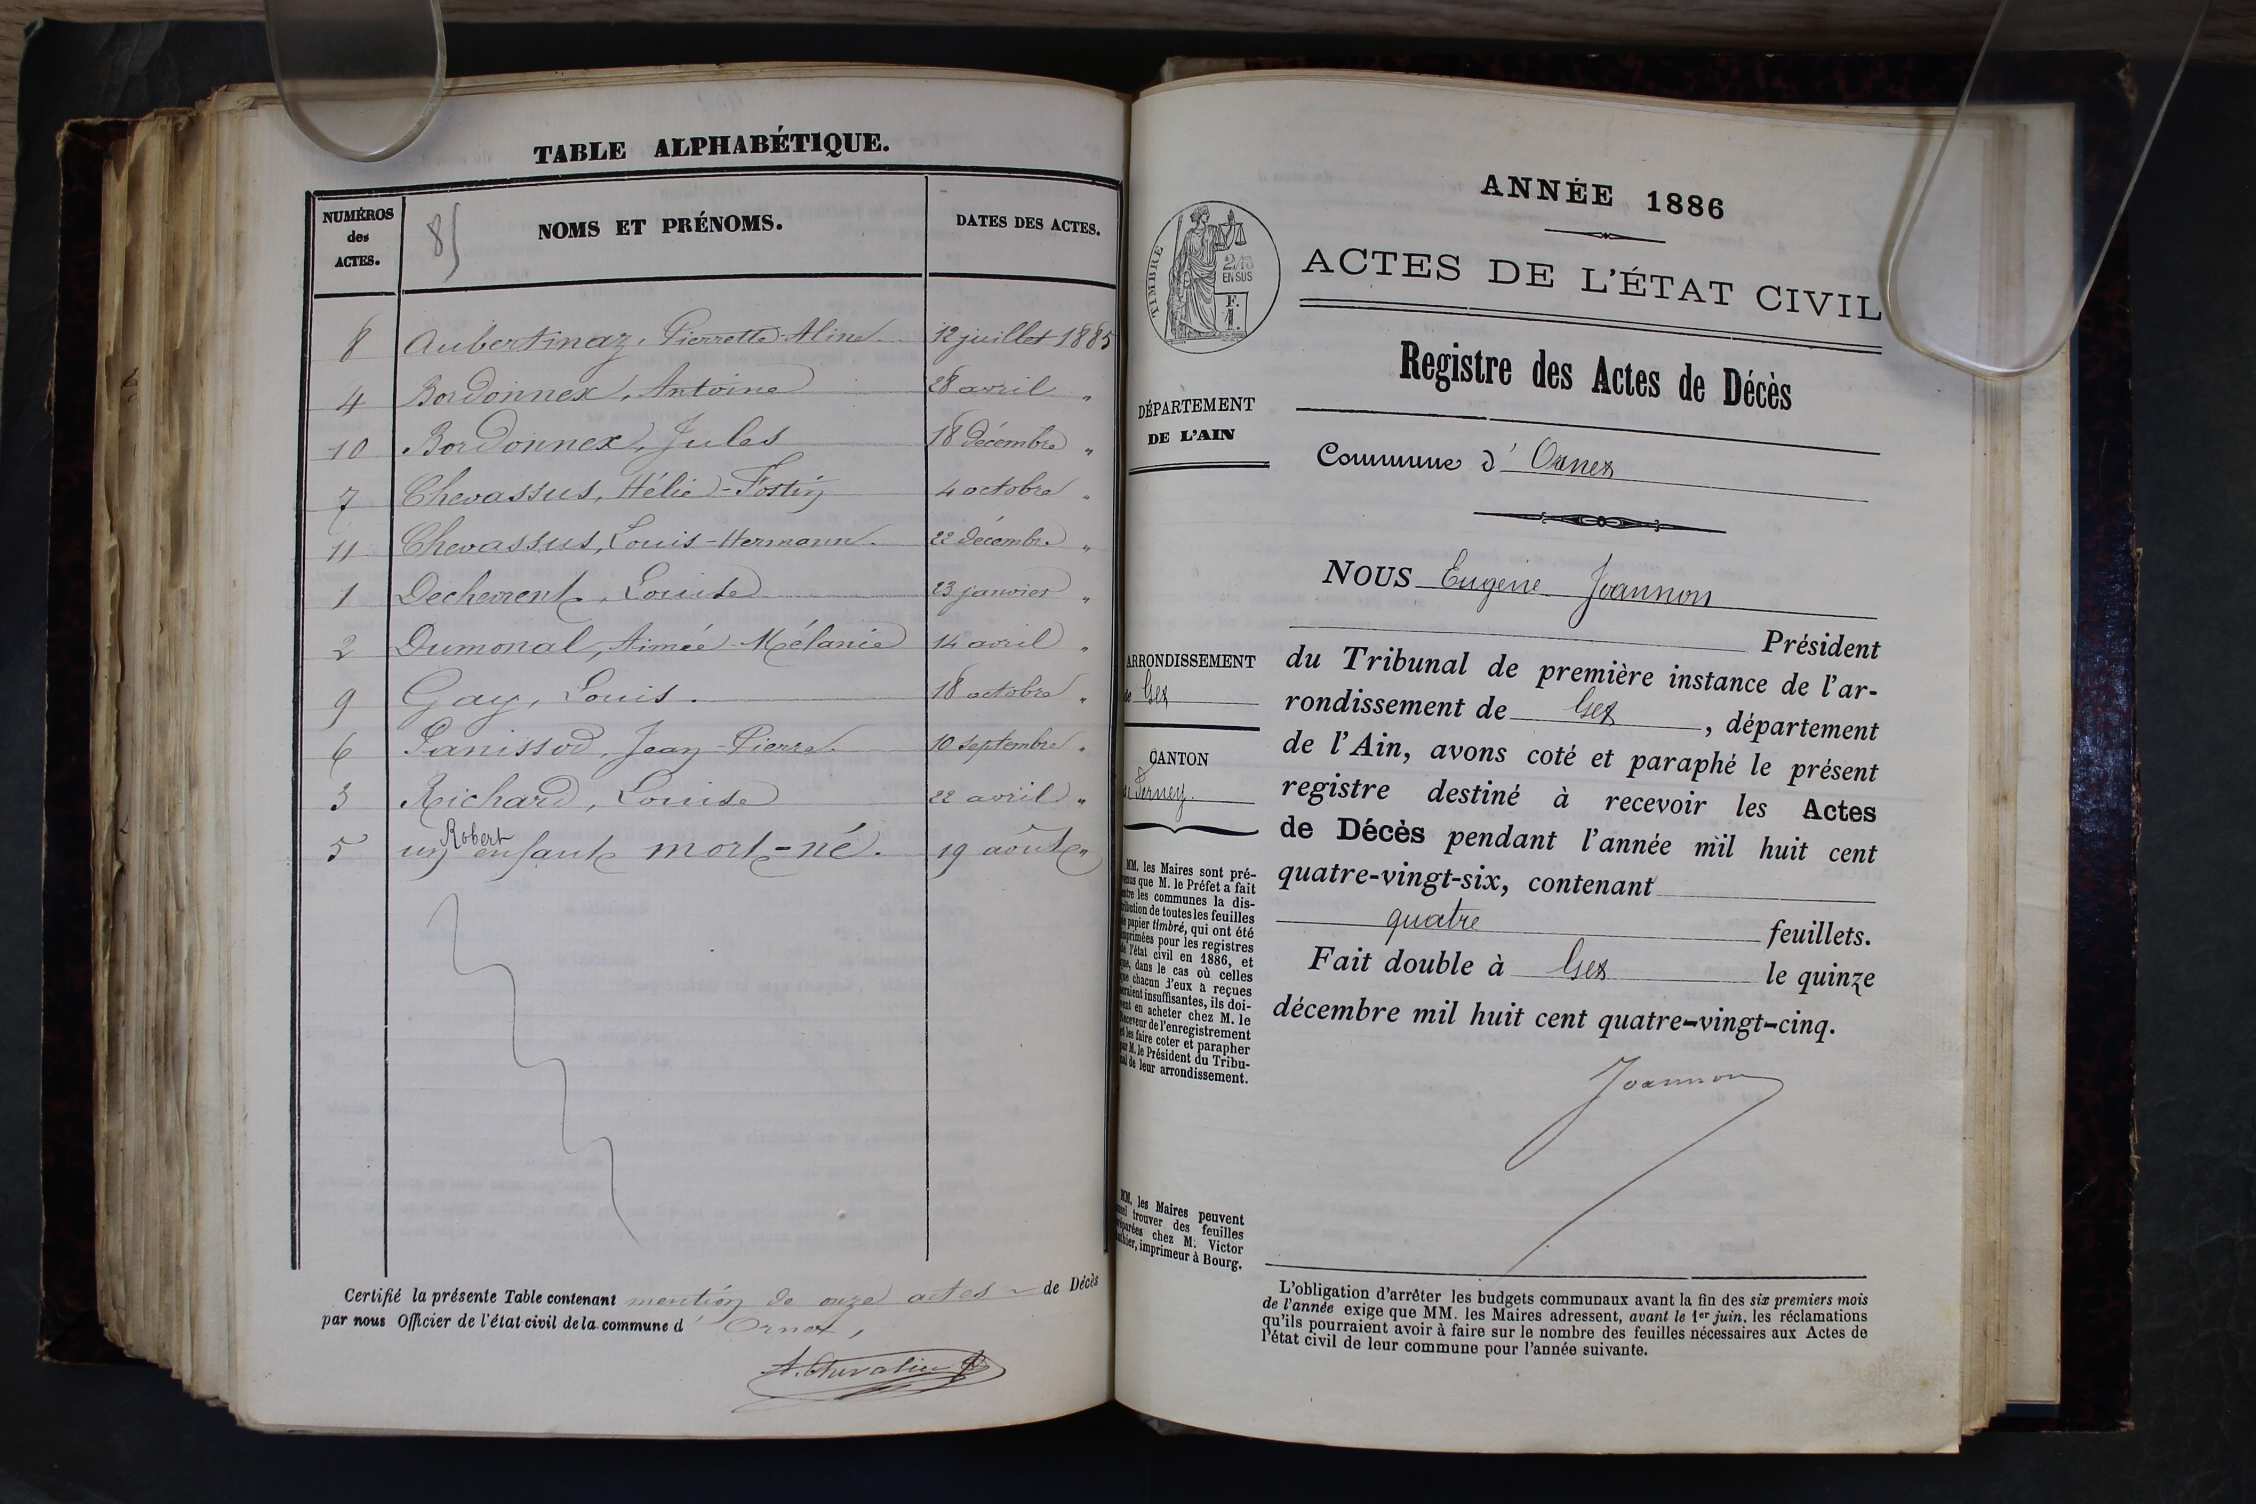 TABLE ALPHABÉTIQUE.
NUMÉROS des ACTES. 85 NOMS ET PRÉNOMS. DATES DES ACTES.
8 Aubertinaz, Pierrette-Aline 12 juillet 1885
4 Bordonnex, Antoine 28 avril "
10 Bordonnex, Jules 18 décembre "
7 Chevassus, Hélie-Fostin 4 octobre "
11 Chevassus, Louis-Hermann 22 décembre "
1 Dechevrent, Louise 23 janvier "
2 Dumonal, Aimée-Mélanie 14 avril "
9 Gay, Louis. 18 octobre "
6 Panissod, Jean-Pierre 10 septembre "
3 Richard, Louise 22 avril "
Robert
5 un enfant mort-né. 19 août "
Certifié la présente Table contenant mention de onze actes de Décès
par nous Officier de l'état civil de la commune d'Ornex,
A. Chevalier
ANNÉE 1886
ACTES DE L'ÉTAT CIVIL
TIMBRE
2/10
EN SUS
F.
1.
Registre des Actes de Décès
DÉPARTEMENT
DE L'AIN
Commune d'Ornex
NOUS Eugene Joannon
Président
du Tribunal de première instance de l'ar-
rondissement de Gex, département
de l'Ain, avons coté et paraphé le présent
registre destiné à recevoir les Actes
de Décès pendant l'année mil huit cent
quatre-vingt-six, contenant
quatre feuillets.
Fait double à Gex le quinze
décembre mil huit cent quatre-vingt-cinq.
Joannon
ARRONDISSEMENT
de Gex
CANTON
de Ferney.
MM. les Maires sont pré-
venus que M. le Préfet a fait
entre les communes la dis-
tribution de toutes les feuilles
de papier timbré, qui ont été
imprimées pour les registres
de l'état civil en 1886, et
que, dans le cas où celles
que chacun d'eux a reçues
seraient insuffisantes, ils doi-
vent en acheter chez M. le
Receveur de l'enregistrement
et les faire coter et parapher
par M. le Président du Tribu-
nal de leur arrondissement.
MM. les Maires peuvent
aussi trouver des feuilles
préparées chez M. Victor
imprimeur à Bourg.
L'obligation d'arrêter les budgets communaux avant la fin des six premiers mois
de l'année exige que MM. les Maires adressent, avant le 1er juin, les réclamations
qu'ils pourraient avoir à faire sur le nombre des feuilles nécessaires aux Actes de
l'état civil de leur commune pour l'année suivante.